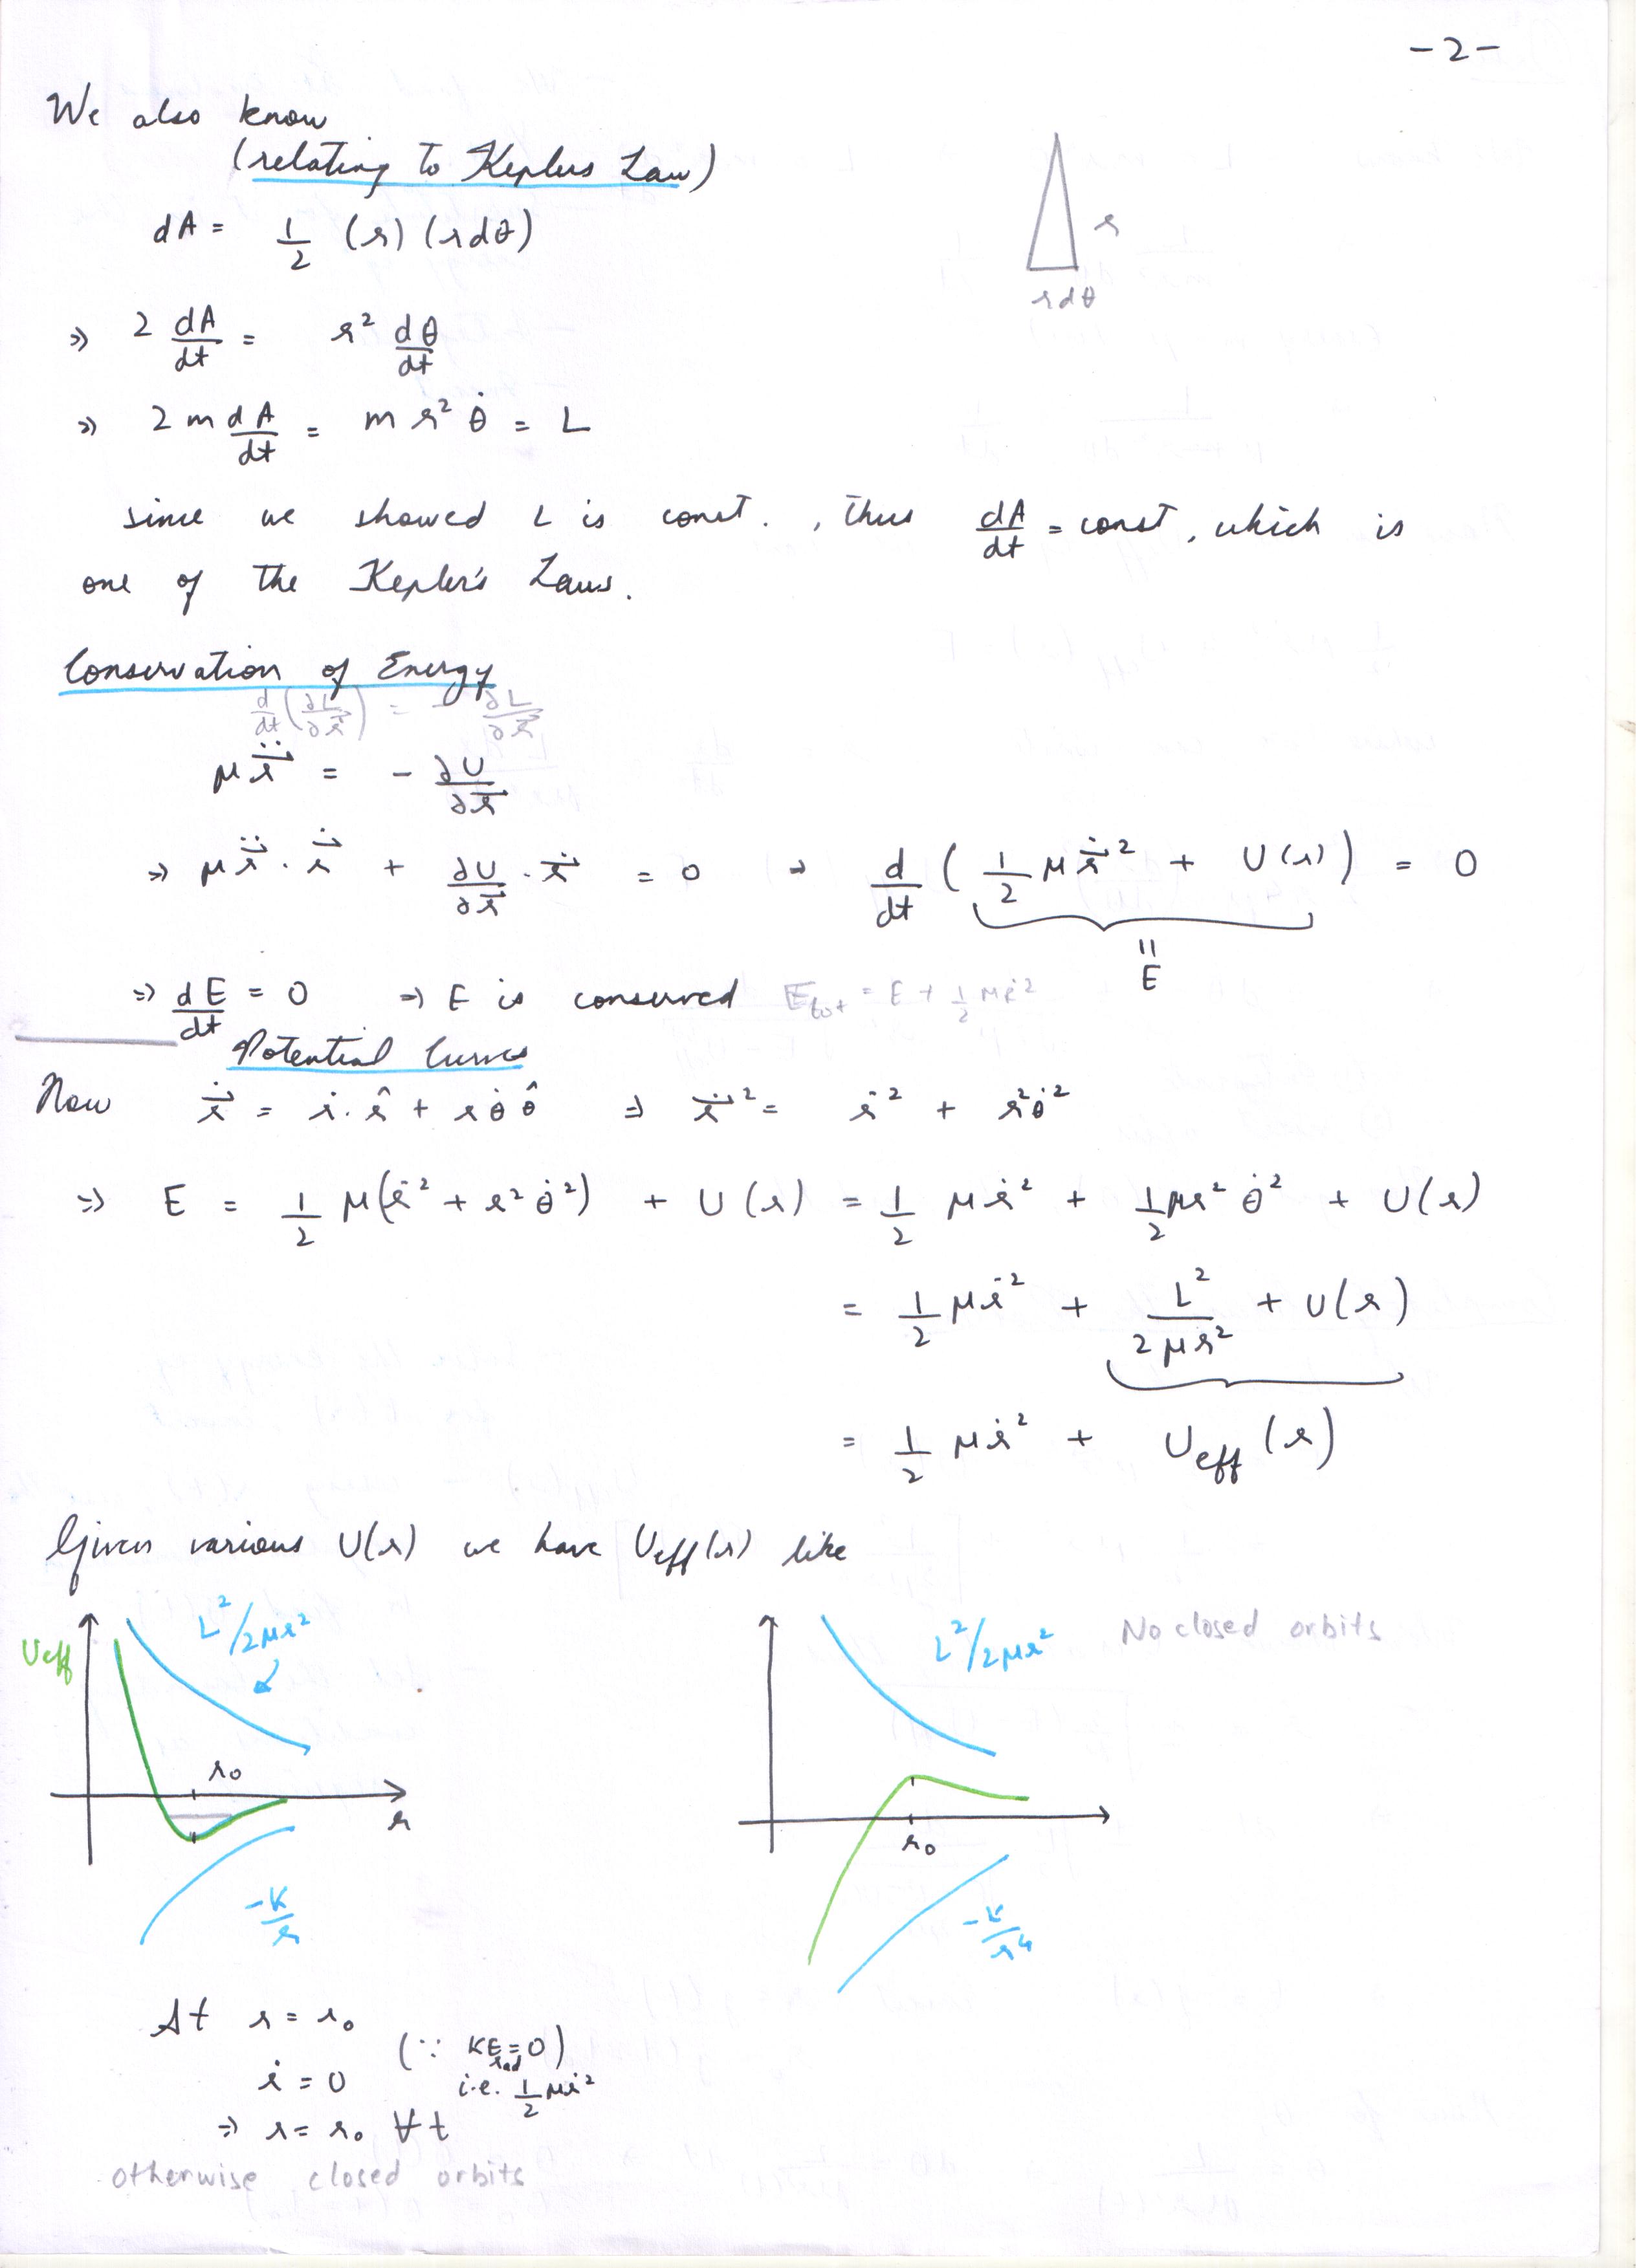 -2-
We also know
(relating to Keplers Law)
dA = 1/2 (r) (rdθ)
r
rdθ
⇒ 2 dA/dt = r² dθ/dt
⇒ 2m dA/dt = m r² θ̇ = L
since we showed L is const. , thus dA/dt = const, which is
one of the Kepler's Laws.
Conservation of Energy
d/dt (∂L/∂ṙ⃗) = ∂L/∂r⃗
μ r̈⃗ = - ∂U/∂r⃗
⇒ μ r̈⃗ . ṙ⃗ + ∂U/∂r⃗ . ṙ⃗ = 0 → d/dt ( 1/2 μ ṙ⃗² + U(r) ) = 0
=
E
⇒ dE/dt = 0 ⇒ E is conserved E_tot = E + 1/2 MṘ²
Potential Curves
Now ṙ⃗ = ṙ . r̂ + r θ̇ θ̂ ⇒ ṙ⃗² = ṙ² + r²θ̇²
⇒ E = 1/2 μ(ṙ² + r² θ̇²) + U(r) = 1/2 μṙ² + 1/2 μr² θ̇² + U(r)
= 1/2 μṙ² + L²/2μr² + U(r)
= 1/2 μṙ² + U_eff (r)
Given various U(r) we have U_eff(r) like
U_eff
L²/2μr²
r₀
r
-K/r
L²/2μr²
No closed orbits
r₀
-K/r⁴
At r = r₀
ṙ = 0 (∵ KE_rad = 0)
i.e. 1/2 μṙ²
⇒ r = r₀ ∀ t
otherwise closed orbits